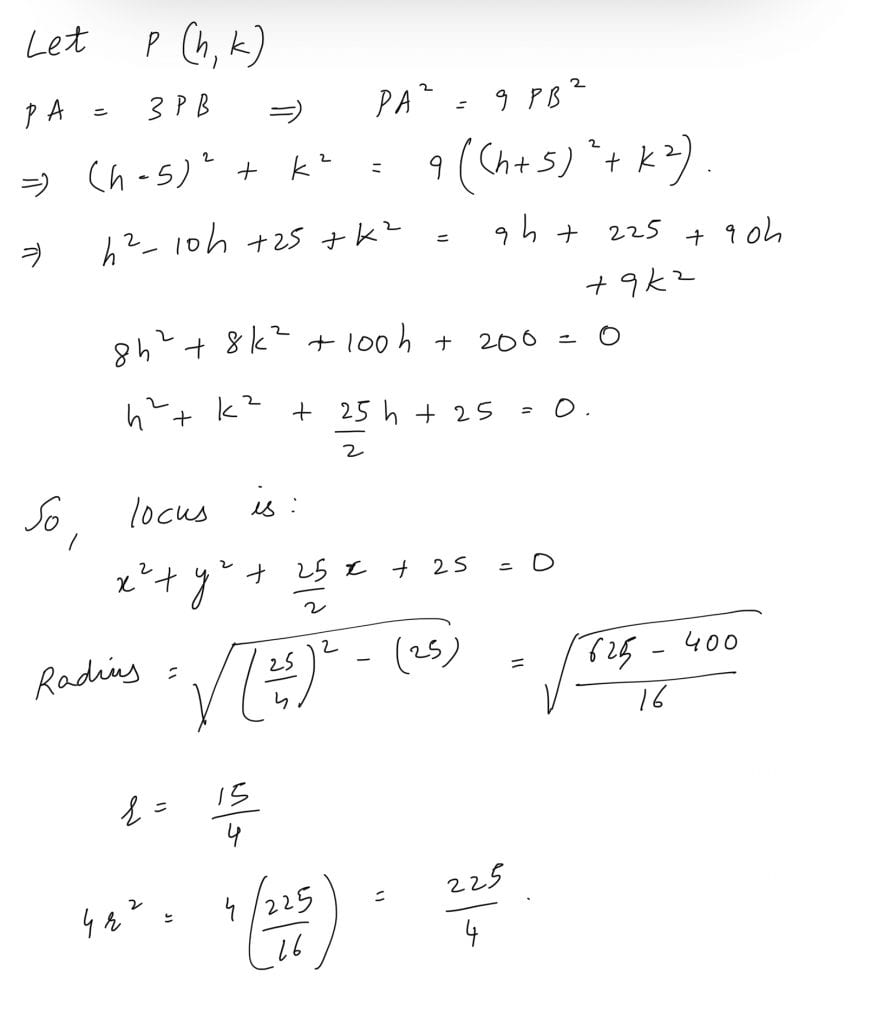 Let P (h, k)
PA = 3PB ⇒ PA² = 9 PB²
⇒ (h-5)² + k² = 9((h+5)² + k²).
⇒ h² - 10h + 25 + k² = 9h + 225 + 90h
+ 9k²
8h² + 8k² + 100h + 200 = 0
h² + k² + 25/2 h + 25 = 0.
So, locus is :
x² + y² + 25/2 x + 25 = 0
Radius = √((25/4)² - (25)) = √((625 - 400)/16)
r = 15/4
4r² = 4(225/16) = 225/4.